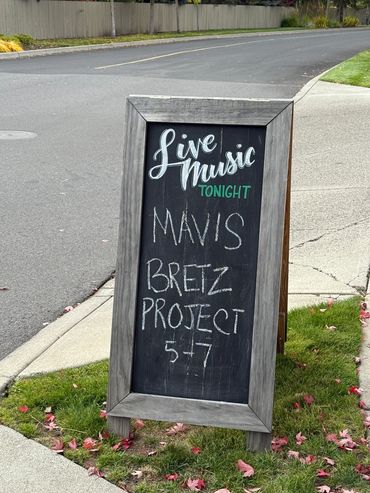 Live
Music
TONIGHT
MAVIS
BRETZ
PROJECT
5-7